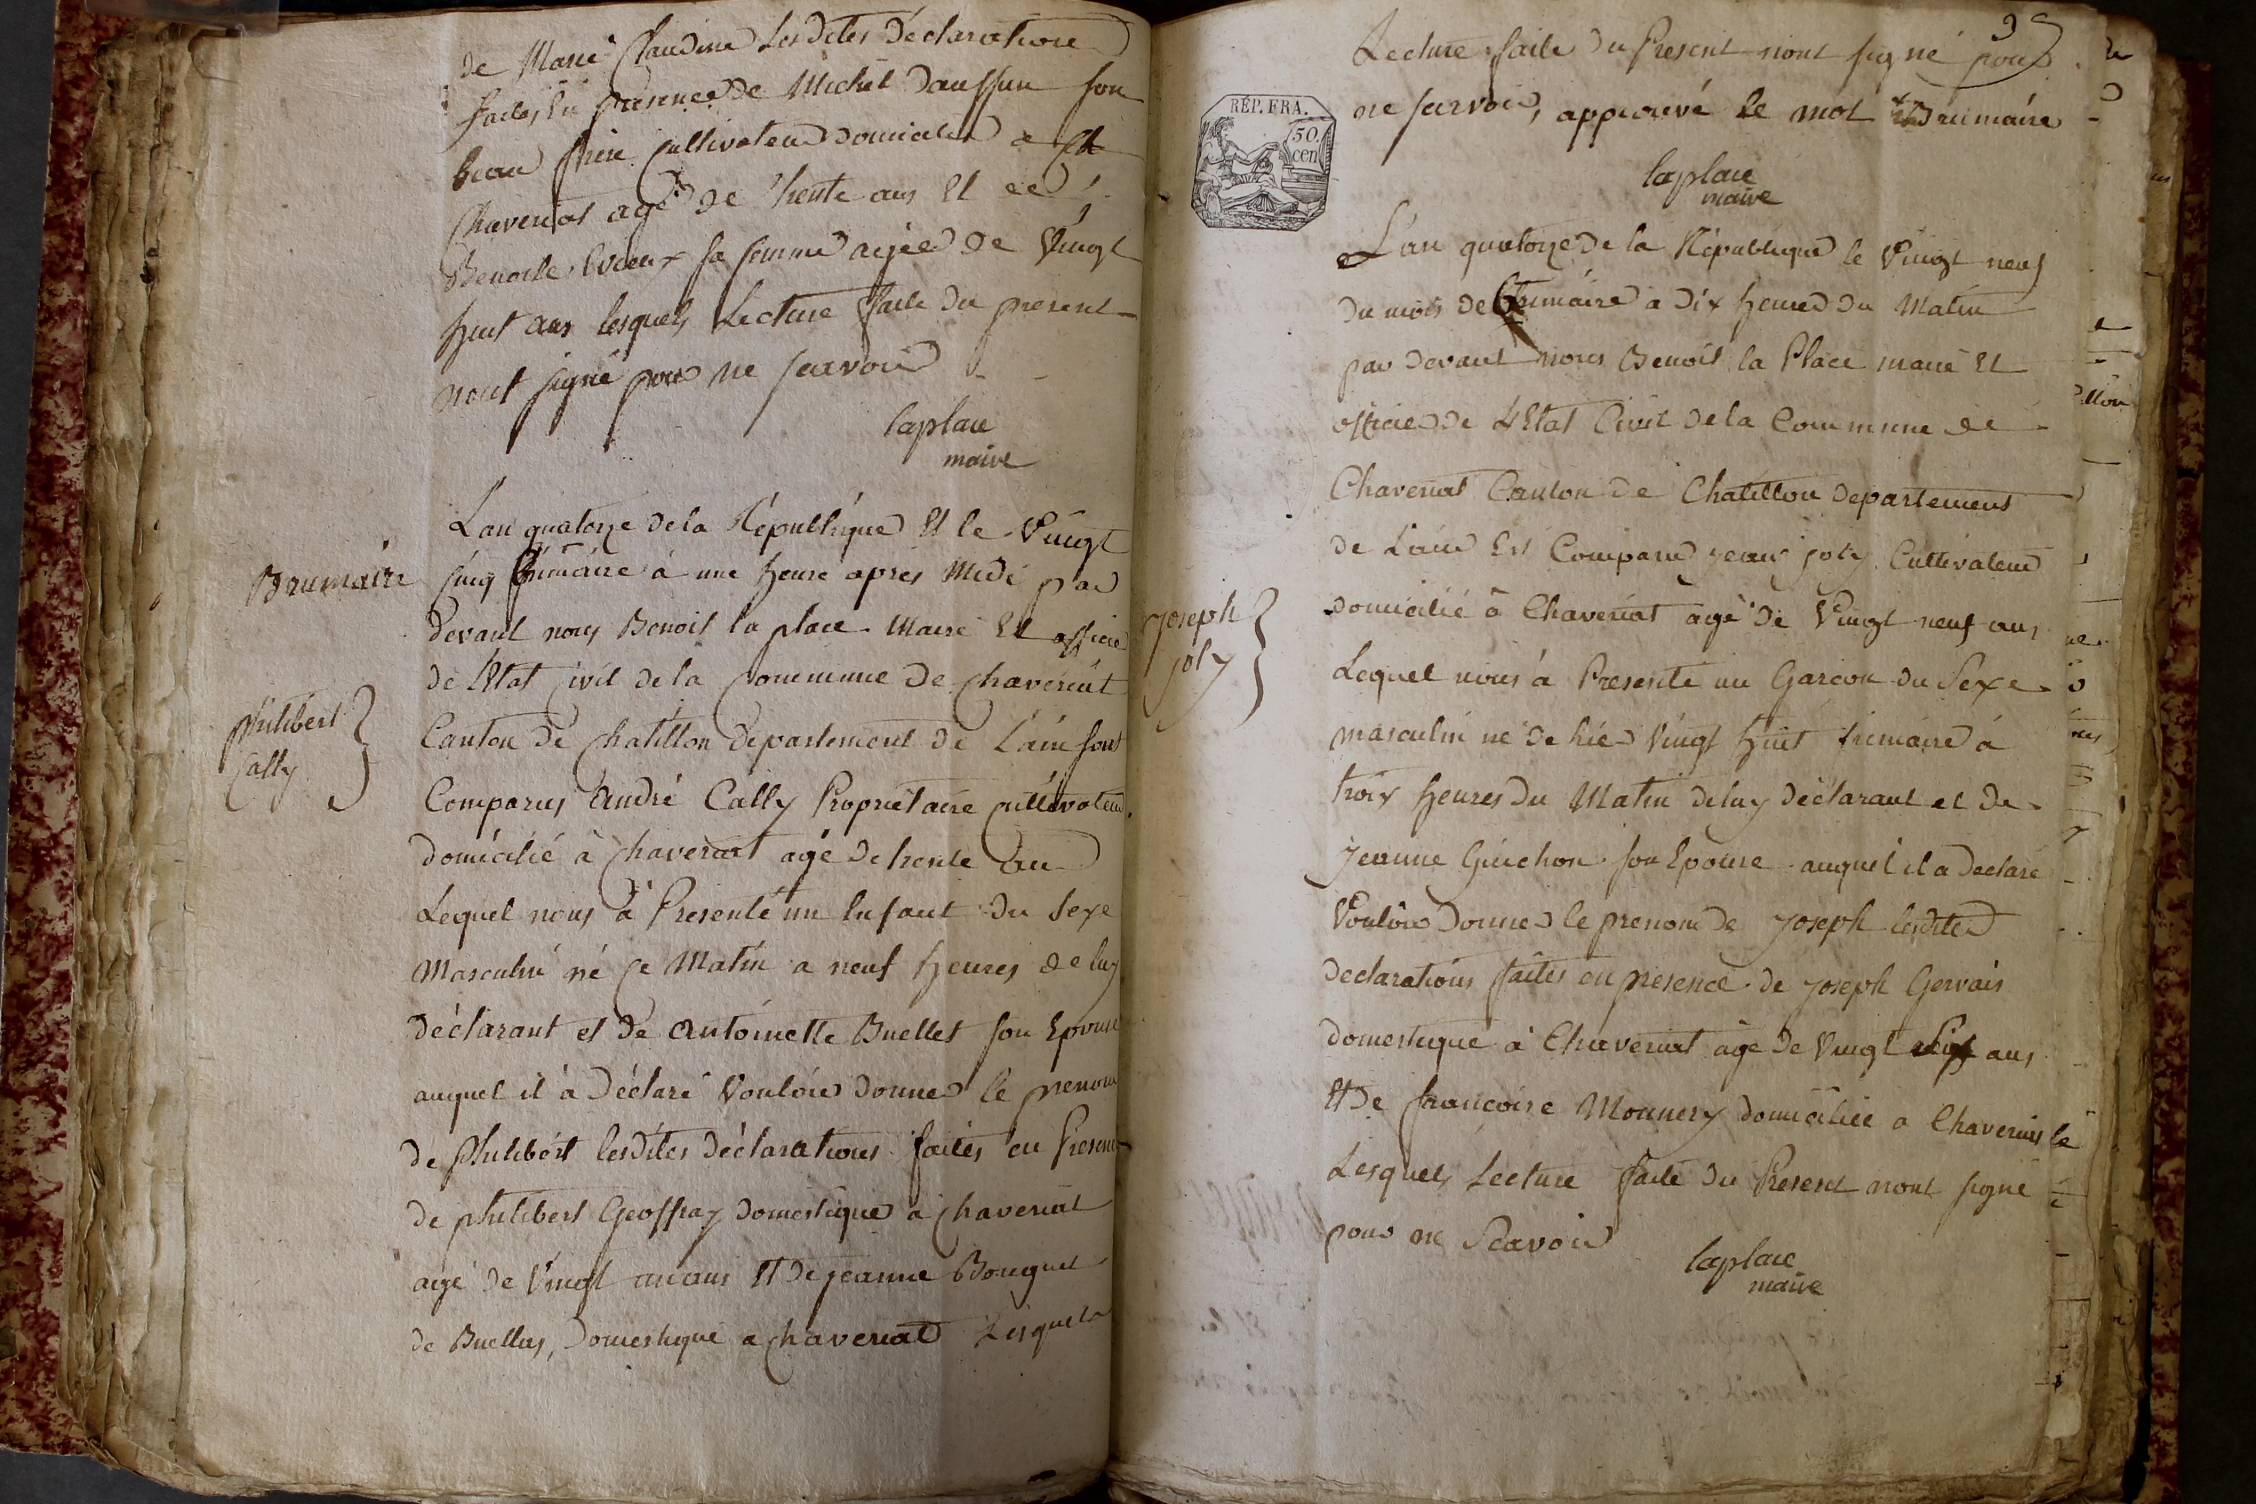 de Marie Claudine Lesdites Déclarations
faites En presence de Michel Dauffun son
beau frère Cultivateur domicilié a
Chaveriat agé de trente ans Et de
Benoite sa femme agée de Vingt
huit ans lesquels Lecture faite du present
nont signé pour ne scavoir
laplace
maire
L'an quatorze de la République Et le Vingt
Brumaire
cinq frimaire à une heure apres Midi par
devant nous Benoit la place Maire Et officier
de l'Etat Civil de la Commune de Chaveriat
philibert
Cally
Canton de Chatillon departement de L'ain sont
Comparus André Cally Propriétaire Cultivateur
domicilié à Chaveriat agé de trente an
Lequel nous à Presenté un Enfant du Sexe
Masculin né ce Matin a neuf heures de luy
déclarant et de Antoinette Buellet son Epouse
auquel il à Déclaré Vouloir donner le prenom
de Philibért lesdites déclarations faites en Presence
de philibert Geoffray domestique a Chaveriat
agé de Vingt un ans Et de jeanne Bouquet
de Buellas, Domestique a Chaveriat Lesquels
Lecture faite du Present nont signé pour
ne scavoir, approuvé le mot Brumaire
RÉP. FRA.
50
cent
laplace
maire
L'an quatorze de la République le Vingt neuf
du mois de frimaire a Dix heures du Matin
par devant nous Benoit la Place maire Et
officier de L'Etat Civil de la Commune de
Chaveriat Canton de Chatillon departement
de L'ain Est Comparu jean joly Cultivateur
Joseph
joly
domicilié à Chaveriat agé de Vingt neuf ans
Lequel nous à Presenté un Garcon du Sexe
masculin né de hier Vingt huit frimaire à
trois heures du Matin de luy déclarant et de
jeanne Guichon son Epouse auquel il a Declaré
Vouloir Donner le prenom de joseph lesdites
declarations faites en presence de joseph Gervais
domestique à Chaveriat age de Vingt ans
Et de francoise Monnery domiciliée a Chaveriat
Lesquels Lecture faite du Present nont signé
pour ne Scavoir
laplace
maire